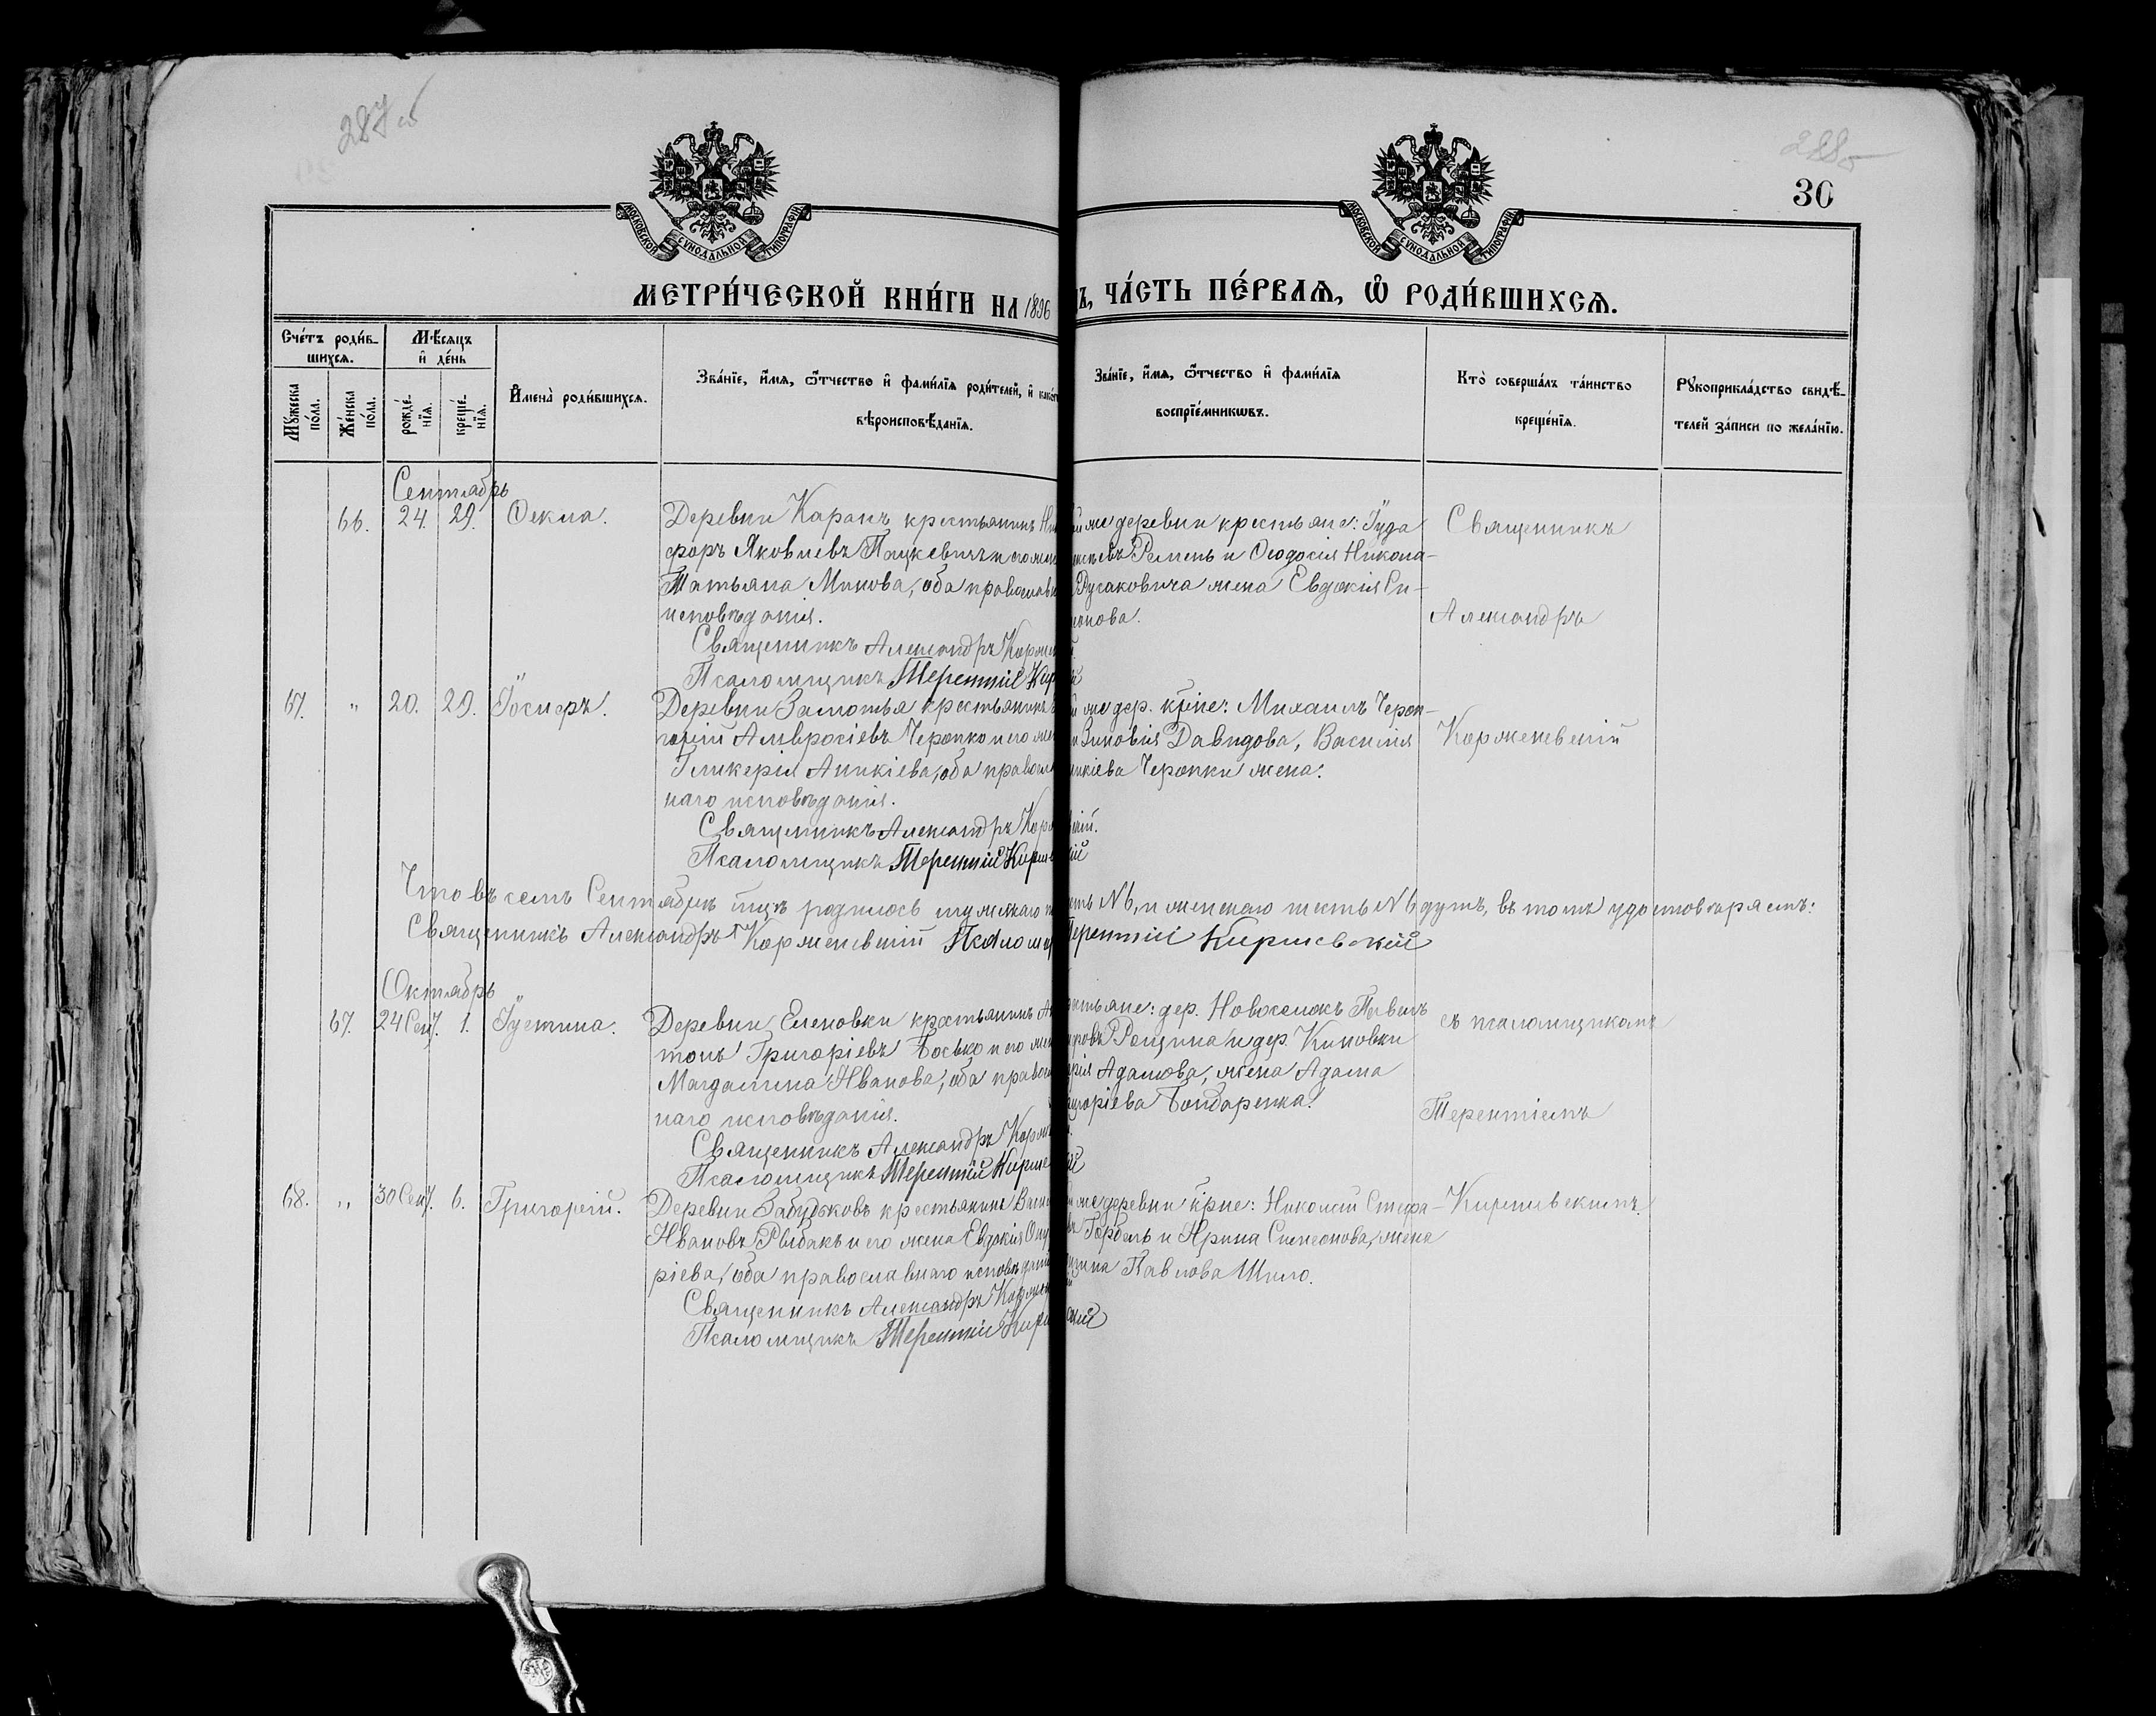 287 об
288
30
МОСКОВСКОЙ СѴНОДАЛЬНОЙ ТИПОГРАФІИ
МОСКОВСКОЙ СѴНОДАЛЬНОЙ ТИПОГРАФІИ
МЕТРИ́ЧЕСКОЙ КНИ́ГИ НА 1896 ЧА́СТЬ ПЕ́РВАЯ, Ѡ҆ РОДИ́ВШИХСЯ.
Сче́тъ роди́в-
шихся.
Мꙋ́жеска по́ла.
Же́нска по́ла.
Мѣ́сяцъ и҆ де́нь
рожде́-нїя.
креще́-нїя.
И҆мена̀ роди́вшихся.
Зва́нїе, и҆́мя, ѻ҆́тчество и҆ фами́лїя роди́телей, и҆
вѣроисповѣ́данїя.
Зва́нїе, и҆́мя, ѻ҆́тчество и҆ фами́лїя
воспрїе́мникѡвъ.
Кто̀ соверша́лъ та́инство
креще́нїя.
Рꙋкоприкла́дство свидѣ́-
телей за́писи по жела́нїю.
Сентябрь
66. 24. 29. Ѳекла.
Деревни Каранъ крестьянинъ Ни
форъ Яковлевъ Пацкевичъ и его жен
Татьяна Минова, оба православн
исповѣданія.
Священникъ Александръ Корже
Псаломщикъ Терентій Кир
же деревни крестьяне: Іуда
Ремень и Ѳеодосія Никола-
Русаковича жена Евдокія Си-
онова.
Священникъ
Александръ
67. " 20. 29. Іосифъ.
Деревни Замотья крестьянинъ
горій Амвросіевъ Черопко и его же
Гликерія Аникіева, оба правосл
наго исповѣданія.
Священникъ Александръ Кор
Псаломщикъ Терентій Кирш
же дер. кр-не: Михаилъ Череп-
и Зиновія Давидова, Василія
икіева Черопки жена.
Коржевскій
Что въ семъ Сентябрѣ мц-ѣ родилось мужскаго п
сть № 6, и женскаго шесть № 6 душъ, въ томъ удостовѣряемъ:
Священникъ Александръ Коржевскій Псалом
Терентій Киршевскій
Октябрь
67. 24 Сен. 1. Іустина.
Деревни Еленовки крестьянинъ Ан
тонъ Григоріевъ Босько и его же
Магдалина Иванова, оба правосл
наго исповѣданія.
Священникъ Александръ Корж
Псаломщикъ Терентій Кирше
стьяне: дер. Новоселокъ Павелъ
ровъ Рощина и дер. Киновки
рія Адамова, жена Адама
игоріева Бондаренка.
съ псаломщикомъ
Терентіемъ
68. " 30 Сен. 6. Григорій.
Деревни Забудьковъ крестьянинъ Васи
Ивановъ Рыбакъ и его жена Евдокія Ону
ріева, оба православнаго исповѣдані
Священникъ Александръ Корже
Псаломщикъ Терентій Кирш
же деревни кр-не: Николай Стефа-
Горбель и Ирина Симеонова, жена
Павлова Шило.
Киршевскимъ.